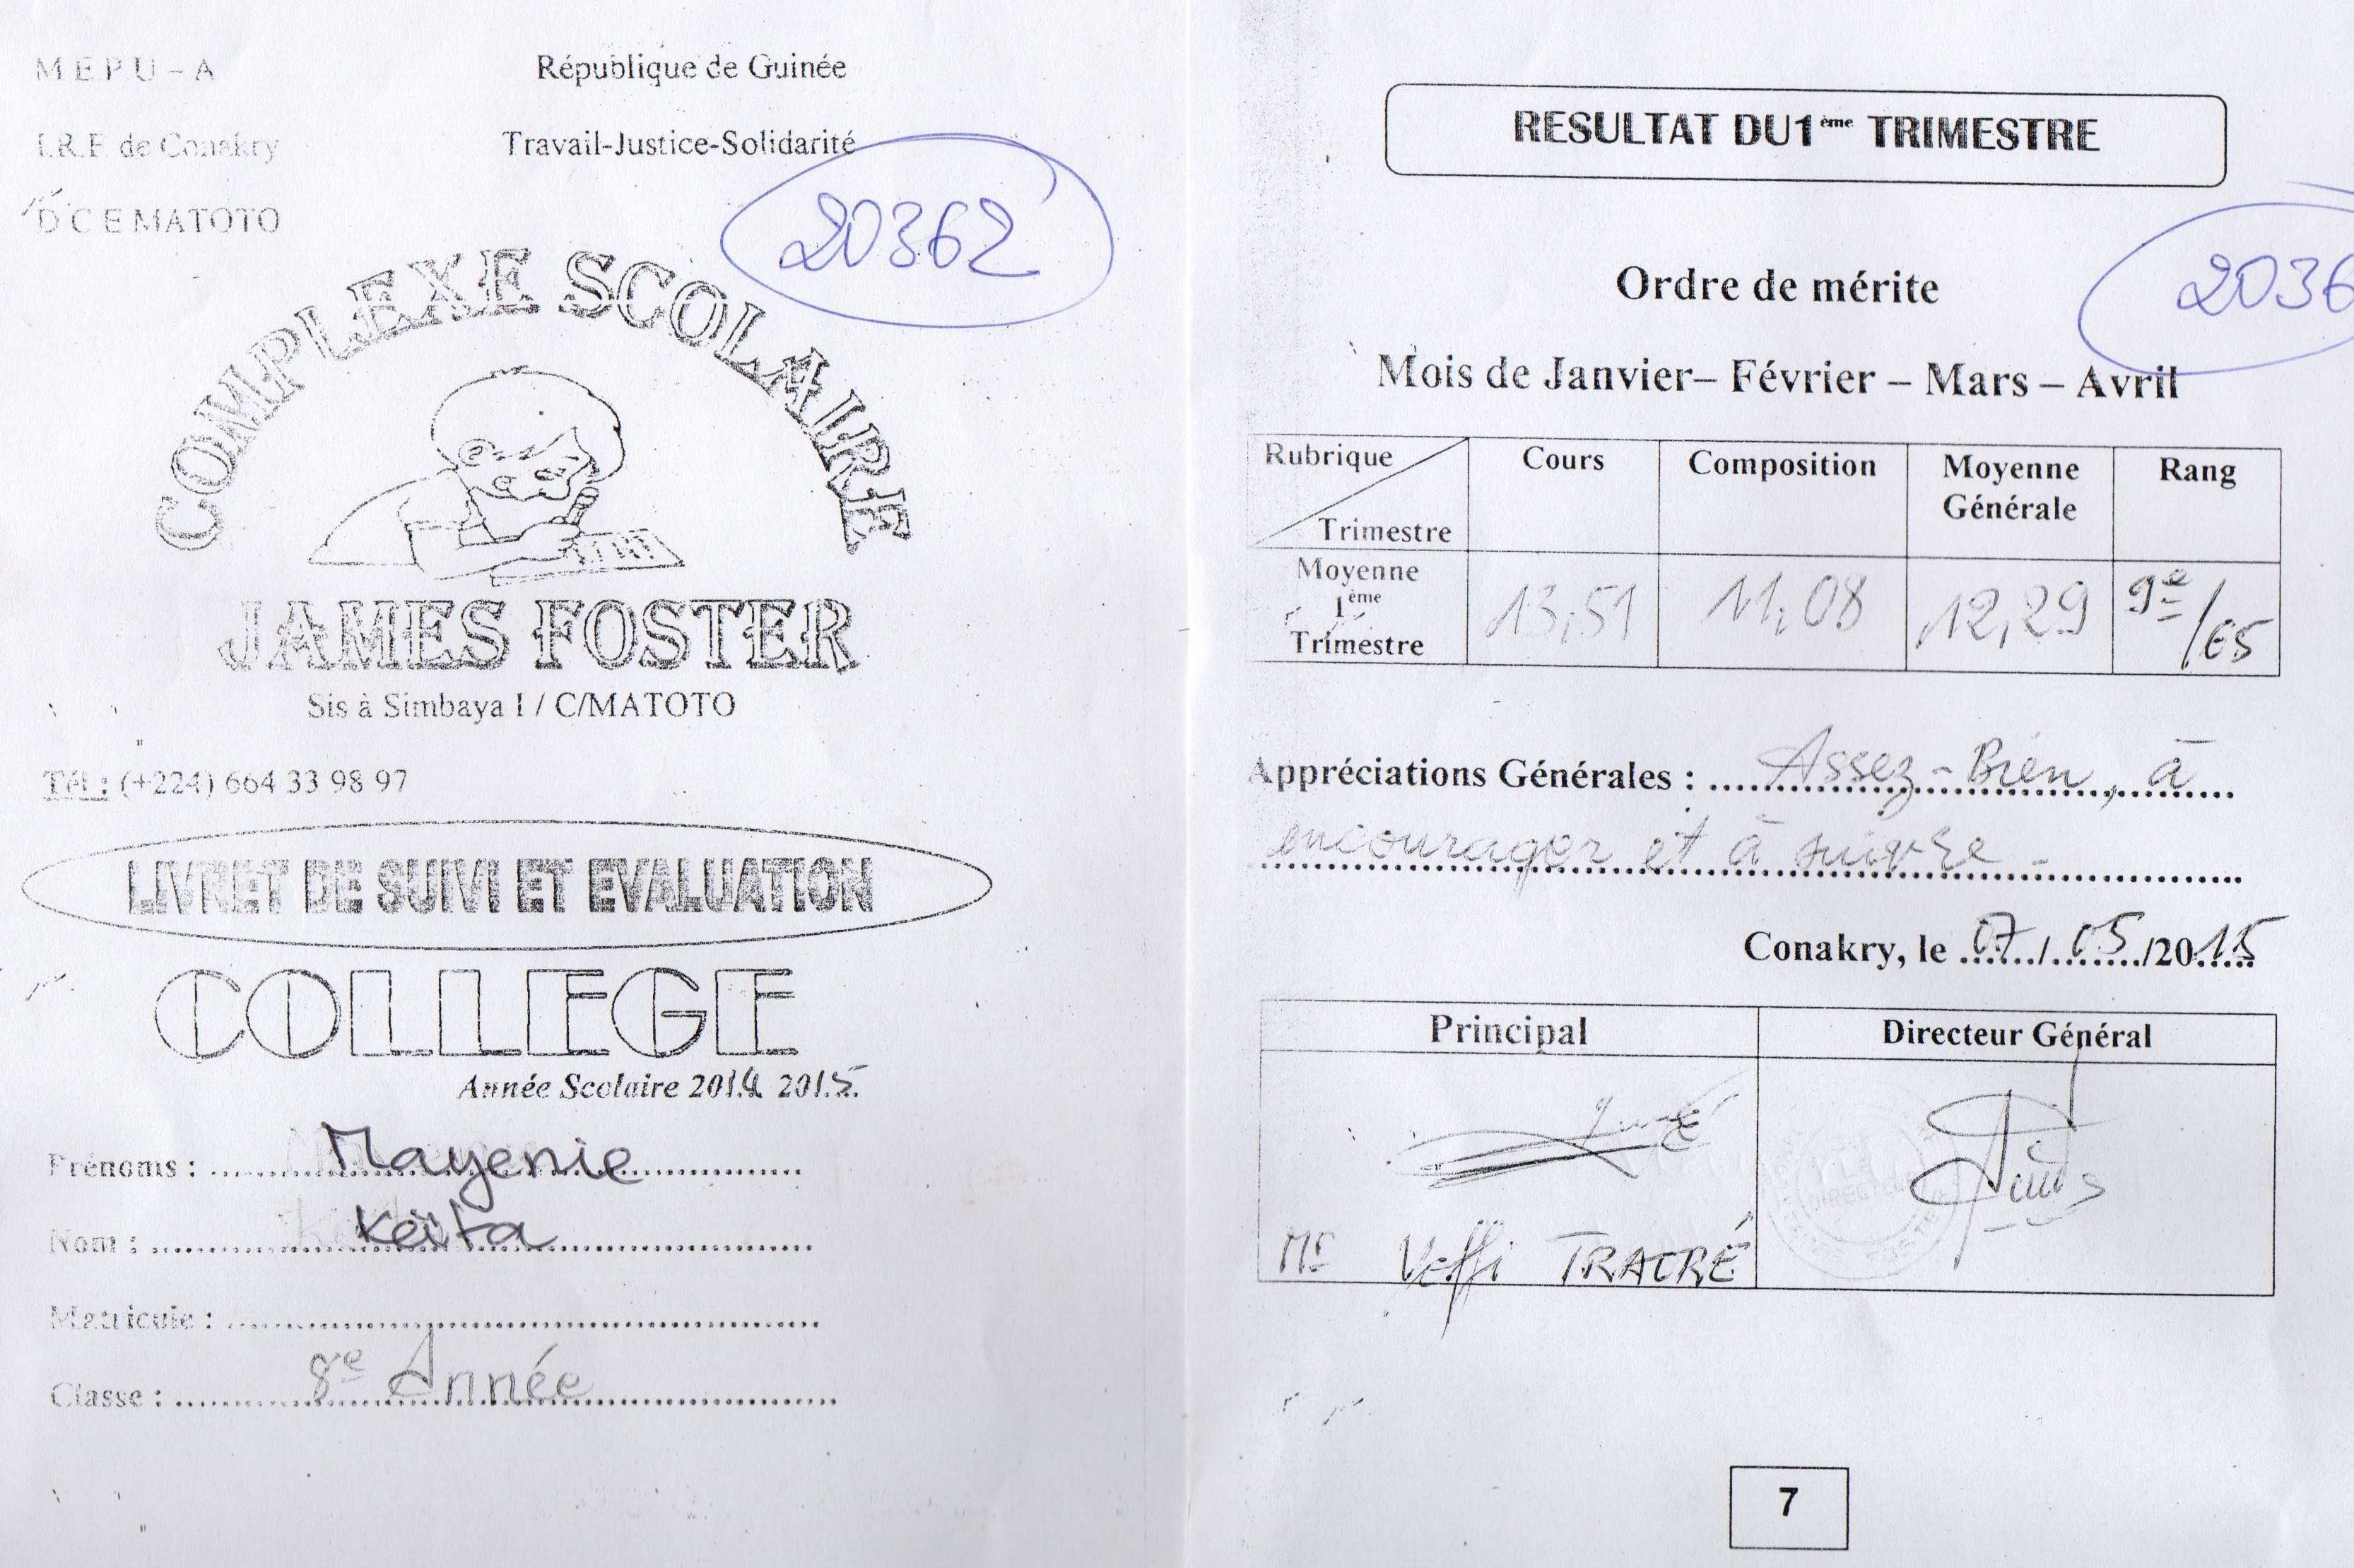 M E P U - A
République de Guinée
I.R.E de Conakry
Travail-Justice-Solidarité
D C E MATOTO
20362
COMPLEXE SCOLAIRE
JAMES FOSTER
Sis à Simbaya I / C/MATOTO
Tél : (+224) 664 33 98 97
LIVRET DE SUIVI ET EVALUATION
COLLEGE
Année Scolaire 2014 2015
Prénoms : Mayenie
Nom : Keïta
Matricule :
Classe : 8e Année
RESULTAT DU1ème TRIMESTRE
2036
Ordre de mérite
Mois de Janvier– Février – Mars – Avril
Rubrique Trimestre Cours Composition Moyenne Générale Rang
Moyenne 1ème Trimestre 13,51 11,08 12,29 9e/65
Appréciations Générales : Assez-Bien, à
encourager et à suivre -
Conakry, le 07/05/2015
Principal Directeur Général
Mr Veffi TRAORÉ
7